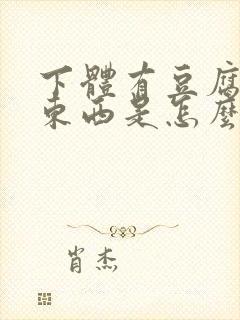 下體有豆腐
東西是怎麼
肖杰